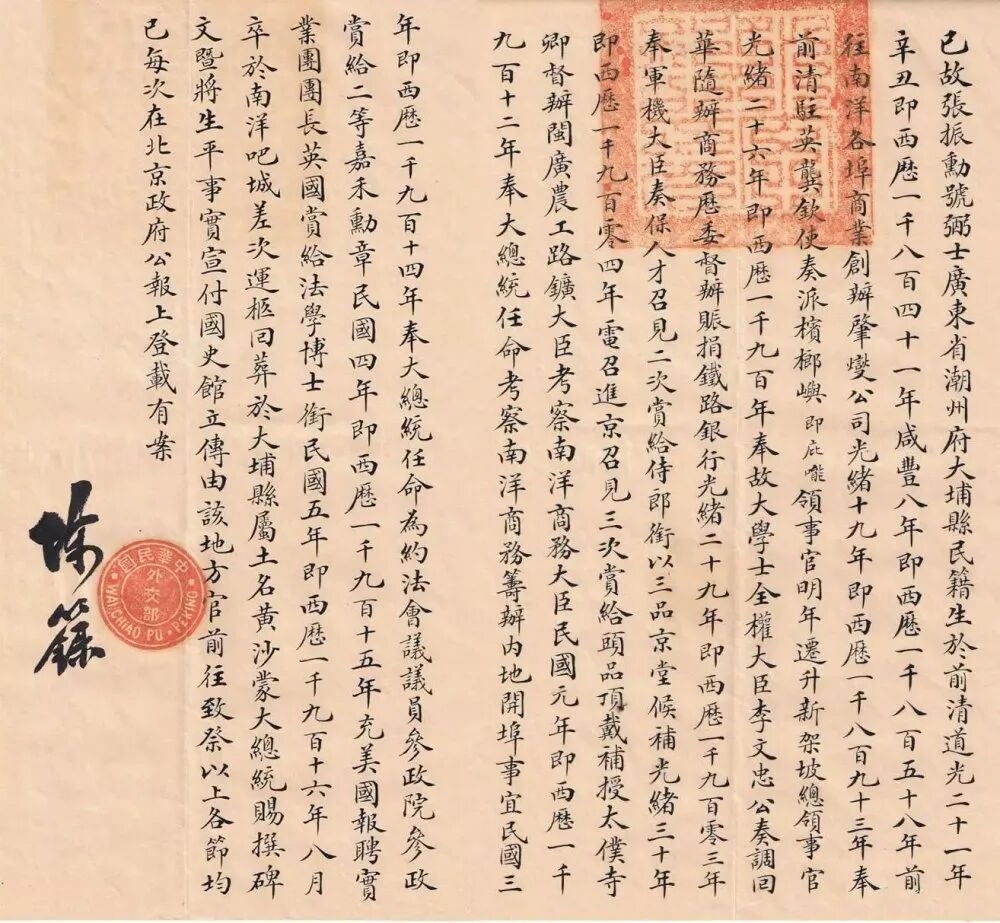 已故張振勳號弼士廣東省潮州府大埔縣民籍生於前清道光二十一年
辛丑即西歷一千八百四十一年咸豐八年即西歷一千八百五十八年前
往南洋各埠商業創辦肇燮公司光緒十九年即西歷一千八百九十三年奉
前清駐英龔欽使奏派檳榔嶼即庇能領事官明年遷升新架坡總領事官
光緒二十六年即西歷一千九百年奉故大學士全權大臣李文忠公奏調回
華隨辦商務歷委督辦賑捐鐵路銀行光緒二十九年即西歷一千九百零三年
奉軍機大臣奏保人才召見二次賞給侍郎銜以三品京堂候補光緒三十年
即西歷一千九百零四年電召進京召見三次賞給頭品頂戴補授太僕寺
卿督辦閩廣農工路鑛大臣考察南洋商務大臣民國元年即西歷一千
九百十二年奉大總統任命考察南洋商務籌辦內地開埠事宜民國三
年即西歷一千九百十四年奉大總統任命為約法會議議員參政院參政
賞給二等嘉禾勳章民國四年即西歷一千九百十五年充美國報聘實
業團團長英國賞給法學博士銜民國五年即西歷一千九百十六年八月
卒於南洋吧城差次運柩回葬於大埔縣屬土名黃沙蒙大總統賜撰碑
文暨將生平事實宣付國史館立傳由該地方官前往致祭以上各節均
已每次在北京政府公報上登載有案
中華民國
外交部
WAI CHIAO PU · PEKING